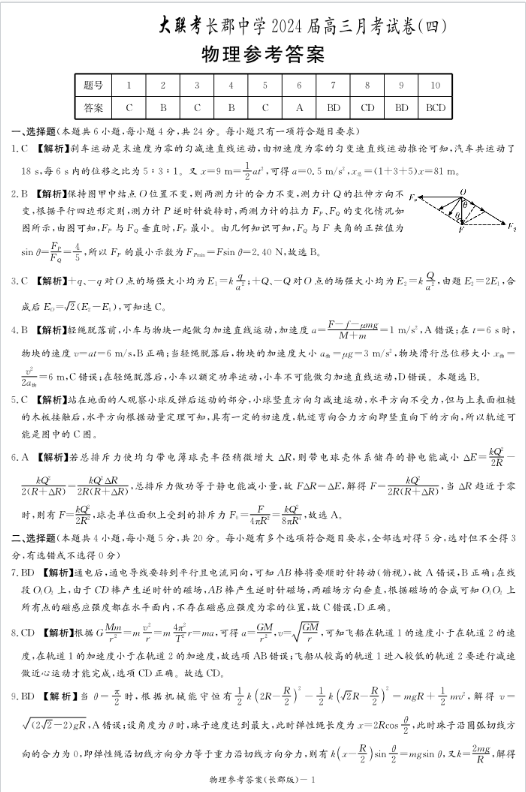 大联考长郡中学2024届高三月考试卷(四)
物理参考答案
题号 1 2 3 4 5 6 7 8 9 10
答案 C B C B C A BD CD BD BCD
一、选择题(本题共6小题,每小题4分,共24分。每小题只有一项符合题目要求)
1.C 【解析】刹车运动是末速度为零的匀减速直线运动,由初速度为零的匀变速直线运动推论可知,汽车共运动了
18 s,每6 s内的位移之比为5∶3∶1。又x=9 m=1/2at²,可得a=0.5 m/s²,x总=(1+3+5)x=81 m。
2.B 【解析】保持图甲中结点O位置不变,则两测力计的合力不变,测力计Q的拉伸方向不
变,根据平行四边形定则,测力计P逆时针旋转时,两测力计的拉力F_P、F_Q的变化情况如
图所示,由图可知,F_P与F_Q垂直时,F_P最小。由几何知识可知,F_Q与F夹角的正弦值为
sin θ=F_P/F_Q=4/5,所以F_P的最小示数为F_Pmin=Fsin θ=2.40 N,故选B。
O
F_P
θ
F
F_Q
3.C 【解析】+q、-q对O点的场强大小均为E₁=k q/a²;+Q、-Q对O点的场强大小均为E₂=k Q/a²,由题E₂=2E₁,合
成后E_O=√2(E₂-E₁),可知选C。
4.B 【解析】轻绳脱落前,小车与物块一起做匀加速直线运动,加速度a=(F-f-μmg)/(M+m)=1 m/s²,A错误;在t=6 s时,
物块的速度v=at=6 m/s,B正确;当轻绳脱落后,物块的加速度大小a物=μg=3 m/s²,物块滑行总位移大小x物=
v²/2a物=6 m,C错误;在轻绳脱落后,小车以额定功率运动,小车不可能做匀加速直线运动,D错误。本题选B。
5.C 【解析】站在地面的人观察小球反弹后运动的部分,小球竖直方向匀减速运动,水平方向不受力,但与上表面粗糙
的木板接触后,水平方向根据动量定理可知,具有一定的初速度,轨迹弯向合力方向即竖直向下的方向,所以轨迹可
能是图中的C图。
6.A 【解析】若总排斥力使均匀带电薄球壳半径稍微增大ΔR,则带电球壳体系储存的静电能减小ΔE=kQ²/2R-
kQ²/2(R+ΔR)=kQ²ΔR/2R(R+ΔR),总排斥力做功等于静电能减小量,故FΔR=ΔE,解得F=kQ²/2R(R+ΔR),当ΔR趋近于零
时,则有F=kQ²/2R²,球壳单位面积上受到的排斥力F₀=F/4πR²=kQ²/8πR⁴,故选A。
二、选择题(本题共4小题,每小题5分,共20分。每小题有多个选项符合题目要求,全部选对得5分,选对但不全得3
分,有选错或不选得0分)
7.BD 【解析】通电后,通电导线要转到平行且电流同向,可知AB棒将要顺时针转动(俯视),故A错误,B正确;在线
段O₁O₂上,由于CD棒产生逆时针的磁场,AB棒产生逆时针磁场,两磁场方向垂直,根据磁场的合成可知O₁O₂上
所有点的磁感应强度都在水平面内,不存在磁感应强度为零的位置,故C错误,D正确。
8.CD 【解析】根据G Mm/r²=m v²/r=m 4π²/T² r=ma,可得a=GM/r²,v=√(GM/r),可知飞船在轨道1的速度小于在轨道2的速
度,在轨道1的加速度小于在轨道2的加速度,故选项AB错误;飞船从较高的轨道1进入较低的轨道2要进行减速
做近心运动才能完成,选项CD正确。故选CD。
9.BD 【解析】当θ=π/2时,根据机械能守恒有1/2 k(2R-R/2)²-1/2 k(√2R-R/2)²=mgR+1/2 mv²,解得v=
√((2√2-2)gR),A错误;设角度为θ时,珠子速度达到最大,此时弹性绳长度为x=2Rcos θ/2,此时珠子沿圆弧切线方
向的合力为0,即弹性绳沿切线方向分力等于重力沿切线方向分力,则有k(x-R/2)sin θ/2=mgsin θ,又k=2mg/R,解得
物理参考答案(长郡版)-1